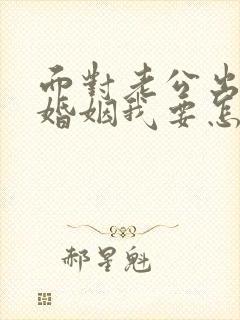 面對老公出
婚姻我要怎
郝星魁